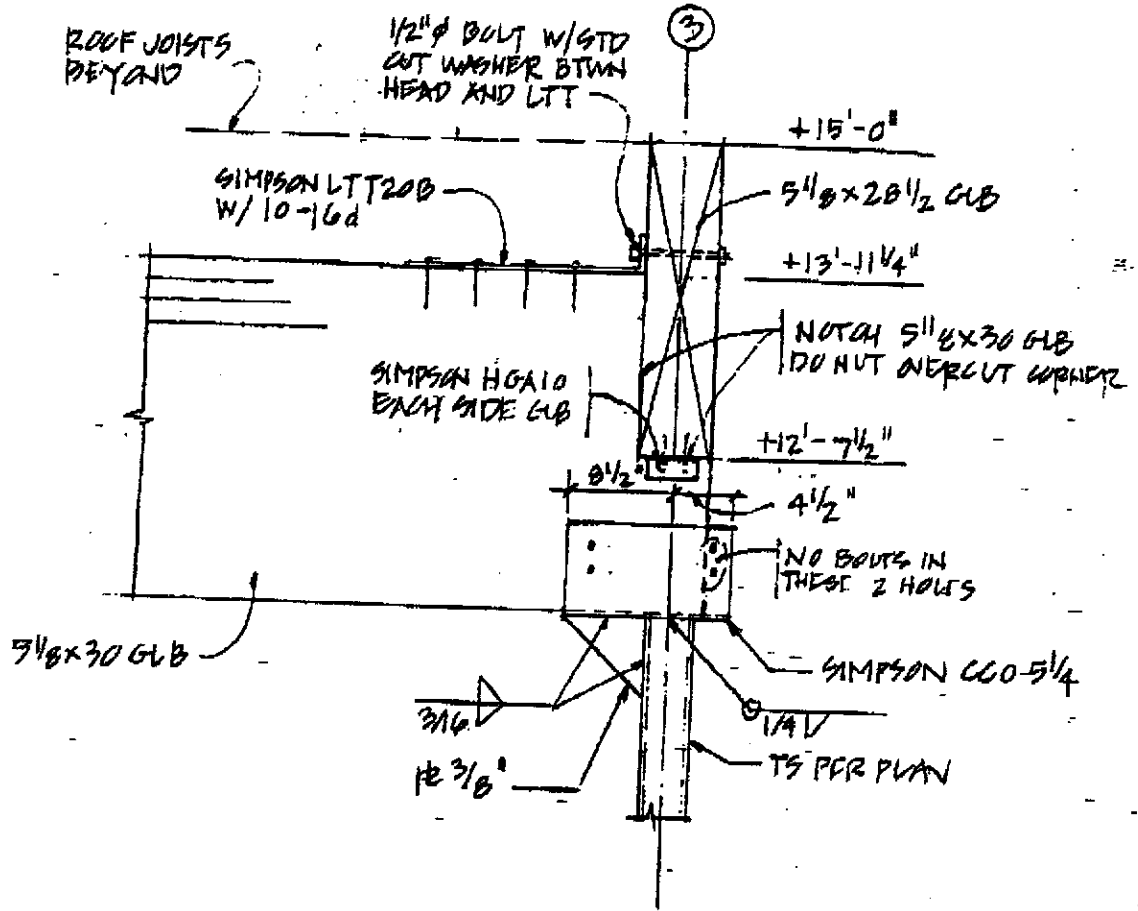 ROOF JOISTS
BEYOND
1/2"ø BOLT W/STD
CUT WASHER BTWN
HEAD AND LTT
3
+15'-0"
SIMPSON LTT20B
W/ 10-16d
5 1/8 x 28 1/2 GLB
+13'-11 1/4"
NOTCH 5 1/8 x 30 GLB
DO NOT OVERCUT CORNER
SIMPSON HGA10
EACH SIDE GLB
+12'-7 1/2"
8 1/2"
4 1/2"
NO BOLTS IN
THESE 2 HOLES
5 1/8 x 30 GLB
SIMPSON CCO-5 1/4
3/16
1/4
PL 3/8"
TS PER PLAN